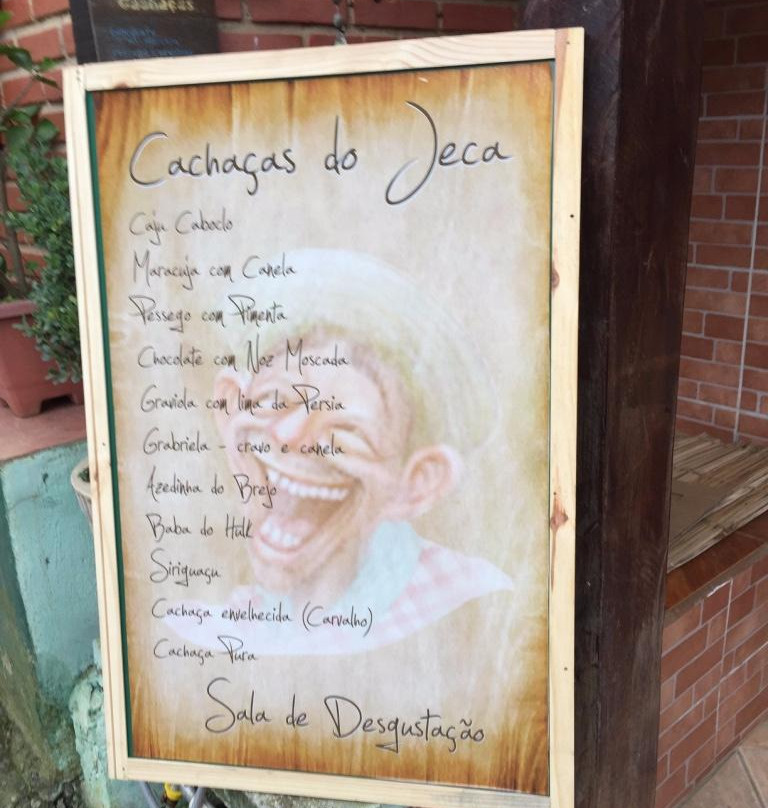 Cachaças
Cachaças do Jeca
Caju Caboclo
Maracuja com Canela
Pessego com Pimenta
Chocolate com Noz Moscada
Graviola com lima da Persia
Grabriela - cravo e canela
Azedinha do Brejo
Baba do Hulk
Siriguaçu
Cachaça envelhecida (Carvalho)
Cachaça Pura
Sala de Desgustação